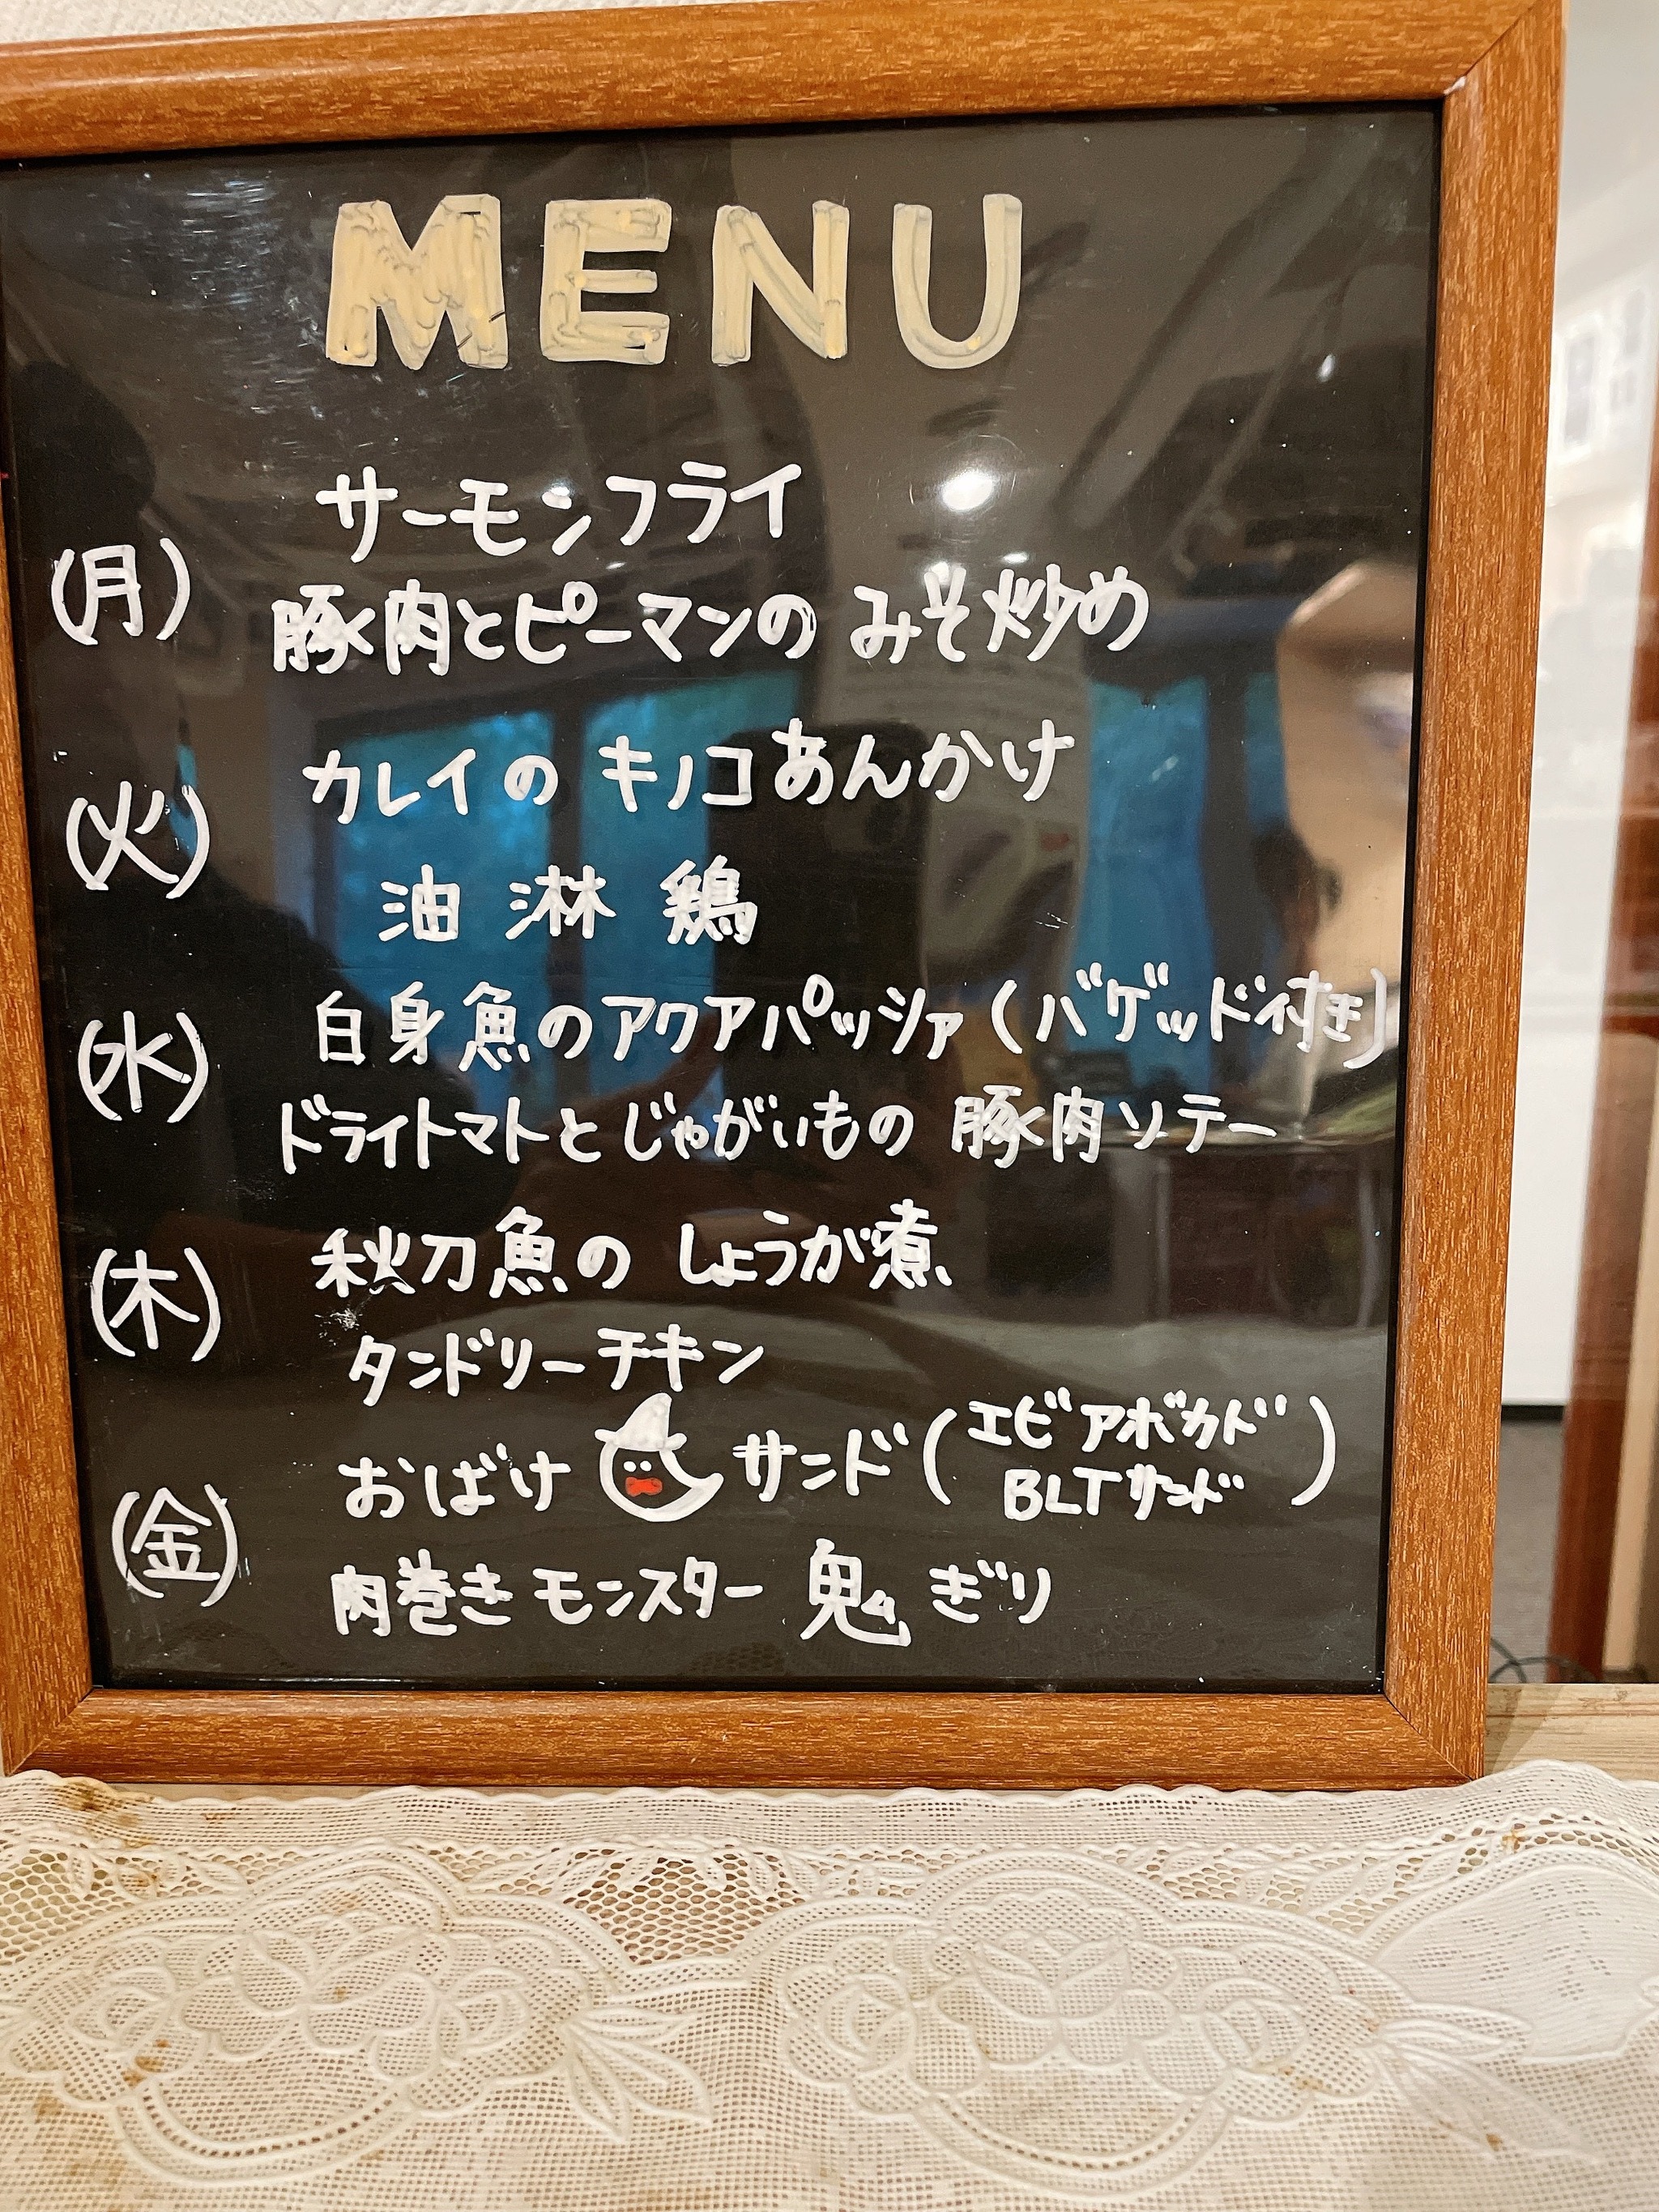 MENU
サーモンフライ
(月)
豚肉とピーマンの みそ炒め
カレイの キノコあんかけ
(火)
油 淋 鶏
白身魚のアクアパッツァ (バゲッド付き)
(水)
ドライトマトとじゃがいもの 豚肉ソテー
秋刀魚の しょうが煮
(木)
タンドリーチキン
おばけ サンド (エビアボカド
BLTサンド)
(金)
肉巻き モンスター 鬼 ぎり